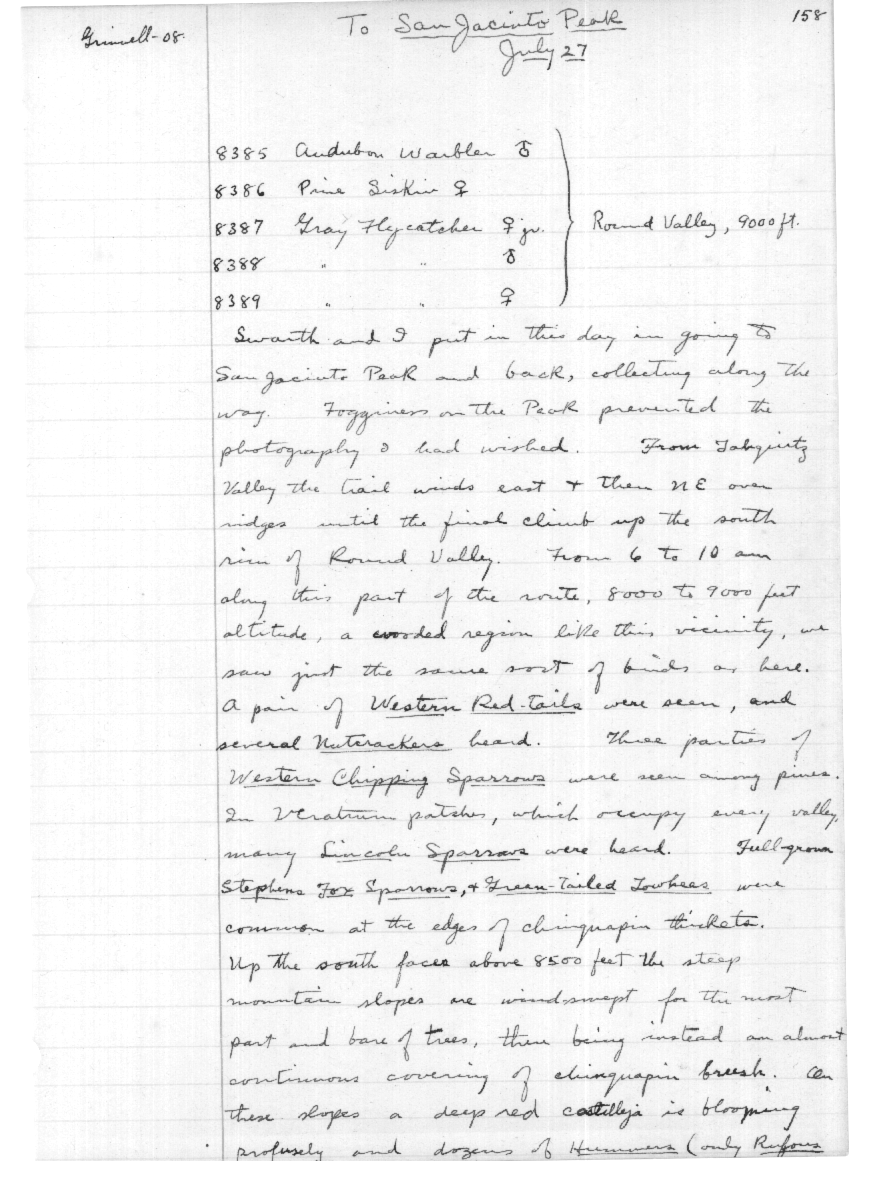 Grinnell-08.
To San Jacinto Peak
158
July 27
8385 Audubon Warbler ♂
8386 Pine Siskin ♀
8387 Gray Flycatcher ♀ jv.
Round Valley, 9000 ft.
8388 " " ♂
8389 " " ♀
Swarth and I put in this day in going to
San Jacinto Peak and back, collecting along the
way. Fogginess on the Peak prevented the
photography I had wished. From Tahquitz
Valley the trail winds east + then NE over
ridges until the final climb up the south
rim of Round Valley. From 6 to 10 am
along this part of the route, 8000 to 9000 feet
altitude, a wooded region like this vicinity, we
saw just the same sort of birds as here.
A pair of Western Red-tails were seen, and
several Nutcrackers heard. Three parties of
Western Chipping Sparrows were seen among pines.
In Veratrum patches, which occupy every valley,
many Lincoln Sparrows were heard. Full-grown
Stephens Fox Sparrows, + Green-tailed Towhees were
common at the edges of chinquapin thickets.
Up the south faces above 8500 feet the steep
mountain slopes are windswept for the most
part and bare of trees, there being instead an almost
continuous covering of chinquapin brush. On
these slopes a deep red castilleja is blooming
profusely and dozens of Hummers (only Rufous